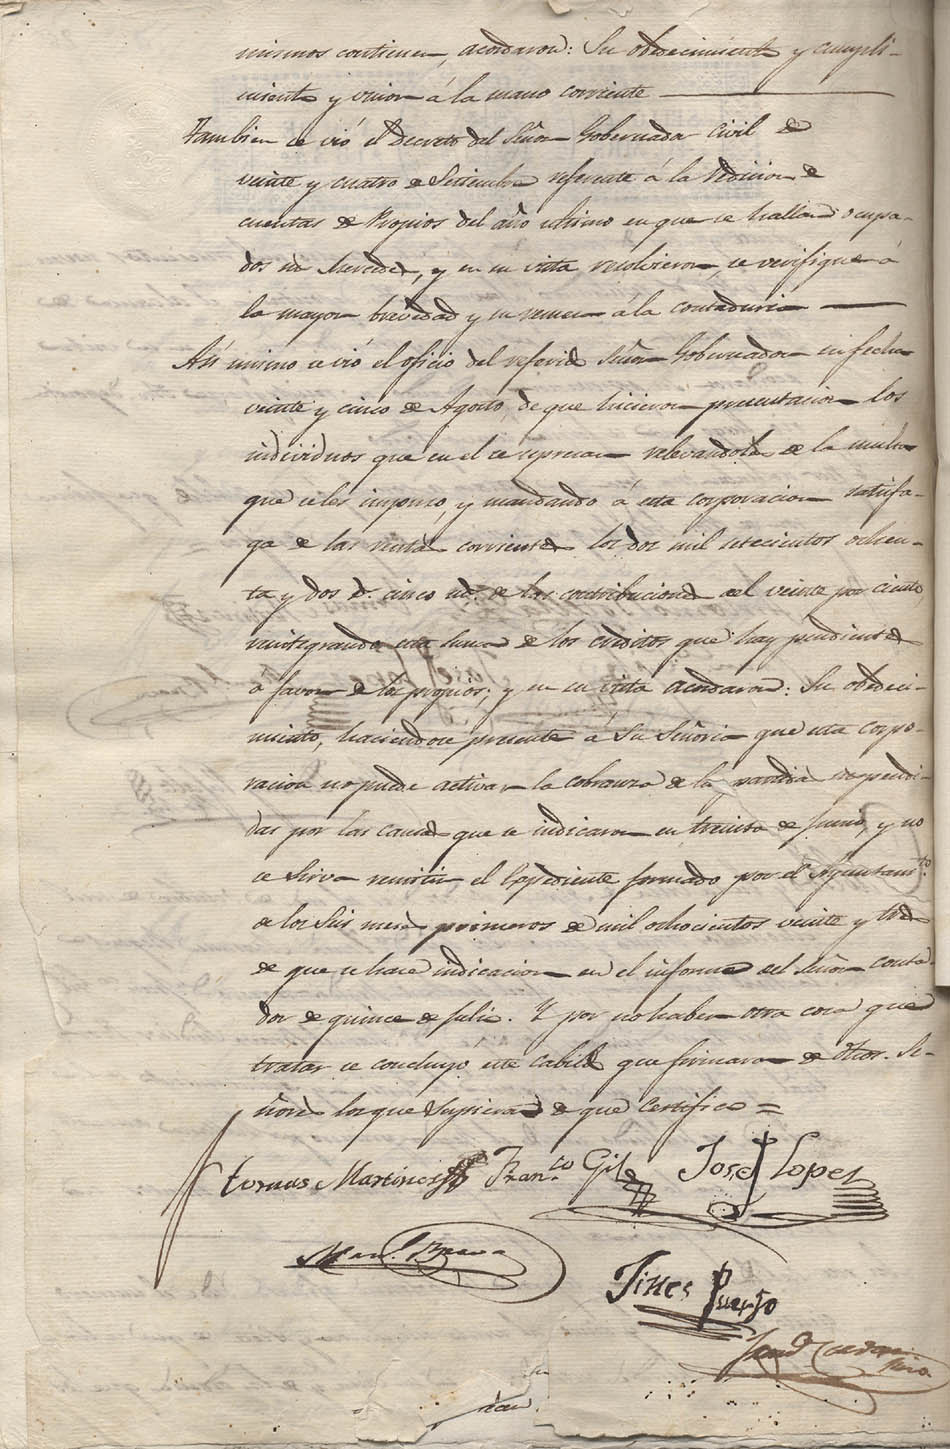 mismos contienen, acordaron: Su obedecimiento y cumpli-
miento y union á la mano corriente
Tambien se vió el Decreto del Señor Gobernador Civil de
veinte y cuatro de Setiembre referente á la redicion de
cuentas de Propios del año ultimo en que se hallan ocupa-
dos sus Mercedes, y en su vista resolvieron, se verifique á
la mayor brevedad y su remesa á la contaduria
Asi mismo se vió el oficio del referido Señor Gobernador su fecha
veinte y cinco de Agosto, de que hicieron presentacion los
individuos que en el se espresan relevandoles de la multa
que se les impuso, y mandando á esta corporacion satisfa-
ga de las rentas corrientes los dos mil setecientos ochen-
ta y dos r.s cinco ms. de las contribuciones del veinte por ciento,
reintegrando esta suma de los creditos que hay pendientes
a favor de los propios; y en su vista acordaron: Su obedeci-
miento, haciendose presente á Su Señoria que esta corpo-
racion no puede activar la cobranza de las
das por las causas que se indicaron en treinta de Junio, y no
se sirve remitir el Espediente formado por el Ayuntam.to
de los Seis meses primeros de mil ochocientos veinte y tres
de que se hace indicacion en el informe del Señor Conta-
dor de quince de Julio. Y por no haber otra cosa que
tratar se concluyó este Cabildo que firmaron de dhos. Se-
ñores los que supieron de que Certifico =
tomas Martines Fran.co Gil Josef Lopez
Man.l Bravo
Jines Puerto